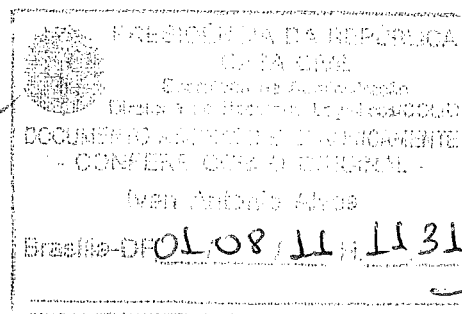 PRESIDÊNCIA DA REPÚBLICA
CASA CIVIL
Secretaria de Administração
DOCUMENTO ASSINADO ELETRONICAMENTE
- CONFERE COM O ORIGINAL -
Ivan Antonio Alves
Brasília-DF 01/08/11 H. 11.31